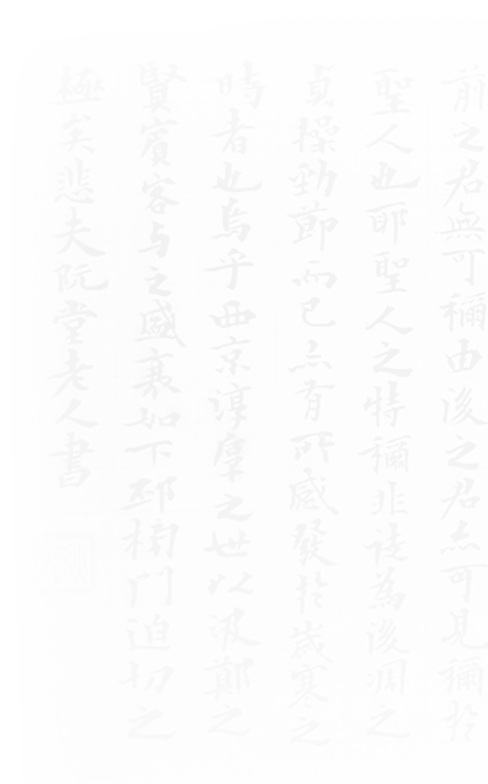 前之君無可稱由後之君亦可見稱於
聖人也耶聖人之特稱非徒爲後凋之
貞操勁節而已亦有所感發於歲寒之
時者也烏乎西京淳厚之世以汲鄭之
賢賓客与之盛衰如下邳榜門迫切之
極矣悲夫阮堂老人書